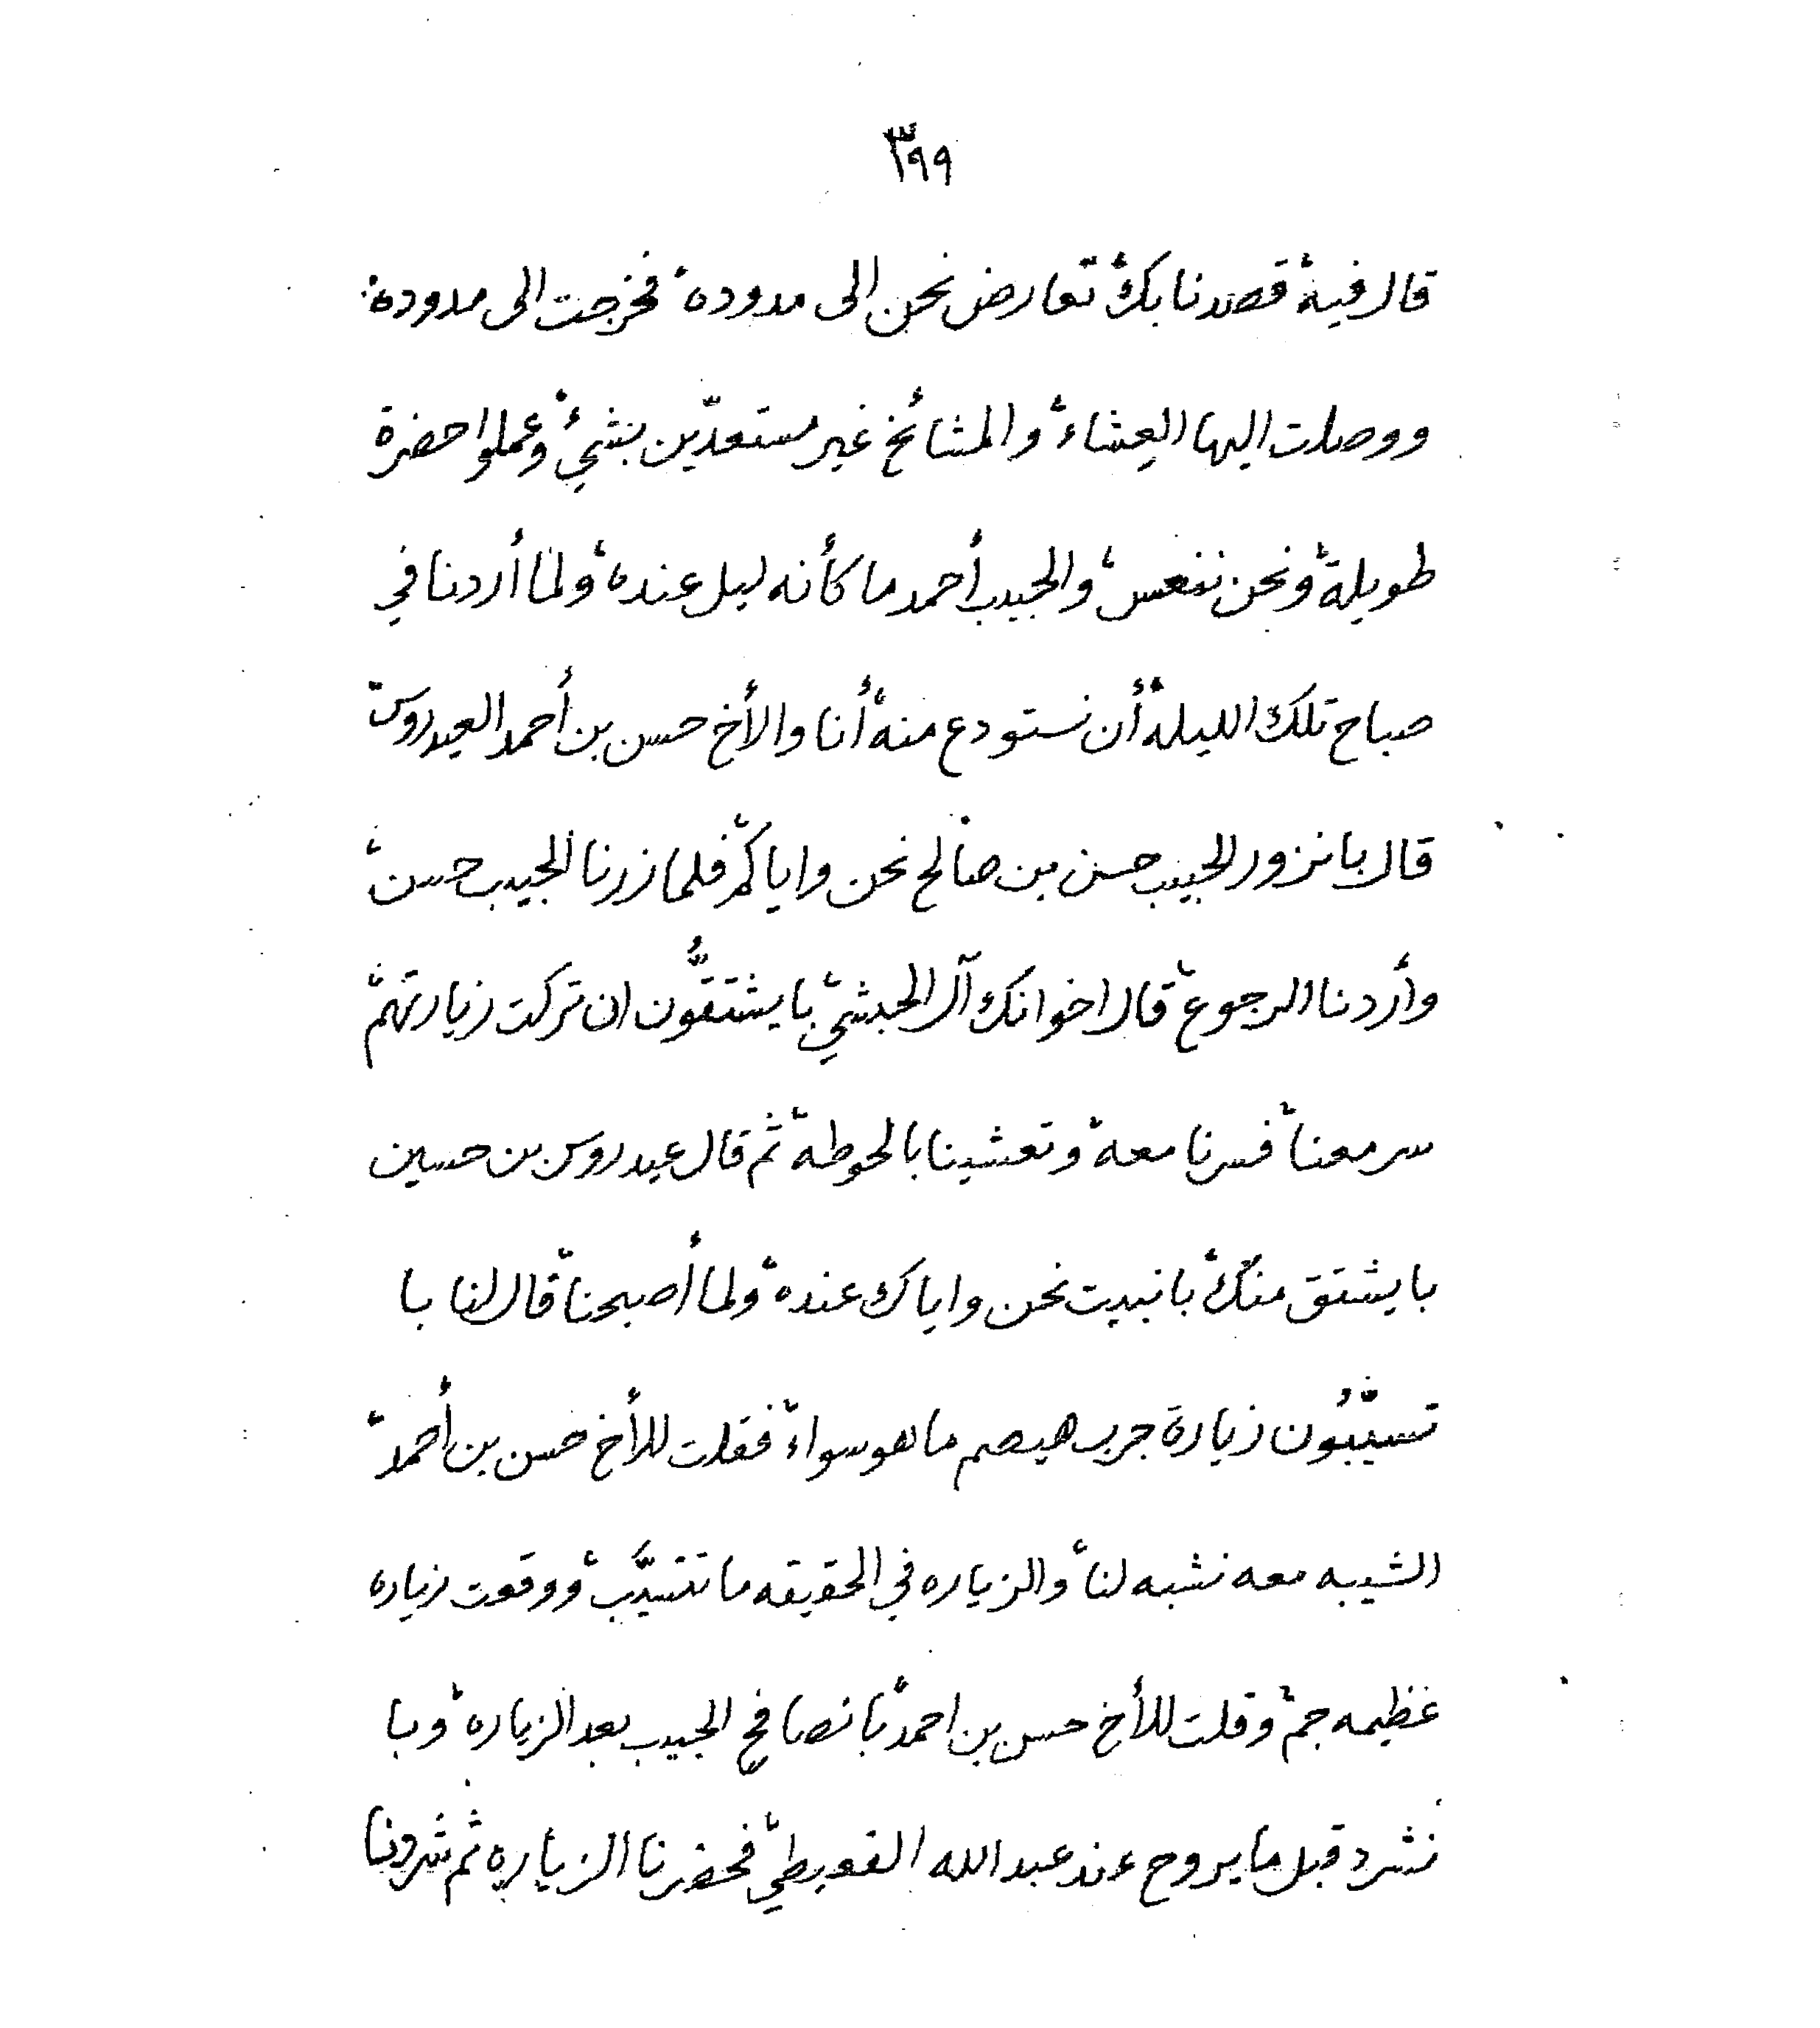 ٣٩٩
قال فيه، قصدنا بك، تعارض نحن الى مدوده، فخرجت الى مدوده،
ووصلت اليها العشاء، والمشائخ غير مستعدّين بشيءٍ، وعملوا حضرة
طويلة، ونحن ننعس، والحبيب أحمد ما كأنه ليل عنده، ولما أردنا في
صباح تلك الليلة، أن نستودع منه، أنا والأخ حسن بن أحمد العيدروس،
قال با نزور الحبيب حسن بن صالح نحن واياكم، فلما زرنا الحبيب حسن،
وأردنا الرجوع، قال اخوانك آل الحبشي، با يشتقُّون ان تركت زيارتهم،
سر معنا، فسرنا معه، وتعشينا بالحوطه، ثم قال عيدروس بن حسين
با يشتق منك، با نبيت نحن واياك عنده، ولما أصبحنا، قال لنا با
تسيّبُون زيارة جرب هيصم ما هو سواء، فقلت للأخ حسن بن أحمد،
الشيبه معه نشبه لنا، والزياره في الحقيقه ما تتسيَّب، ووقعت زياره
عظيمه جم، وقلت للأخ حسن بن احمد، با نصافح الحبيب بعد الزياره، وبا
نشرد قبل ما يروح عند عبد الله القويطي، فحضرنا الزياره ثم شردنا